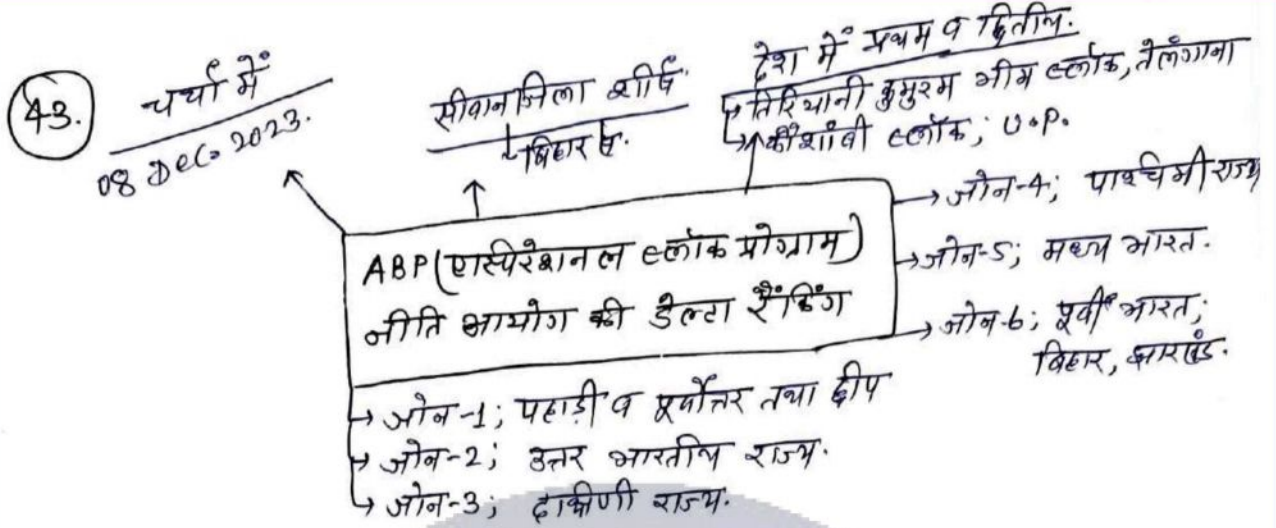 43.
चर्चा में
08 Dec. 2023.
सीवान जिला शीर्ष
बिहार में.
देश में प्रथम व द्वितीय.
तिरियानी कुमुरम भीम ब्लॉक, तेलंगाना
कौशांबी ब्लॉक; U.P.
ABP (एास्पिरेशनल ब्लॉक प्रोग्राम)
नीति आयोग की डेल्टा रैंकिंग
जोन-4; पश्चिमी राज्य
जोन-5; मध्य भारत.
जोन-6; पूर्वी भारत;
बिहार, झारखंड.
जोन-1; पहाड़ी व पूर्वोत्तर तथा द्वीप
जोन-2; उत्तर भारतीय राज्य.
जोन-3; दक्षिणी राज्य.